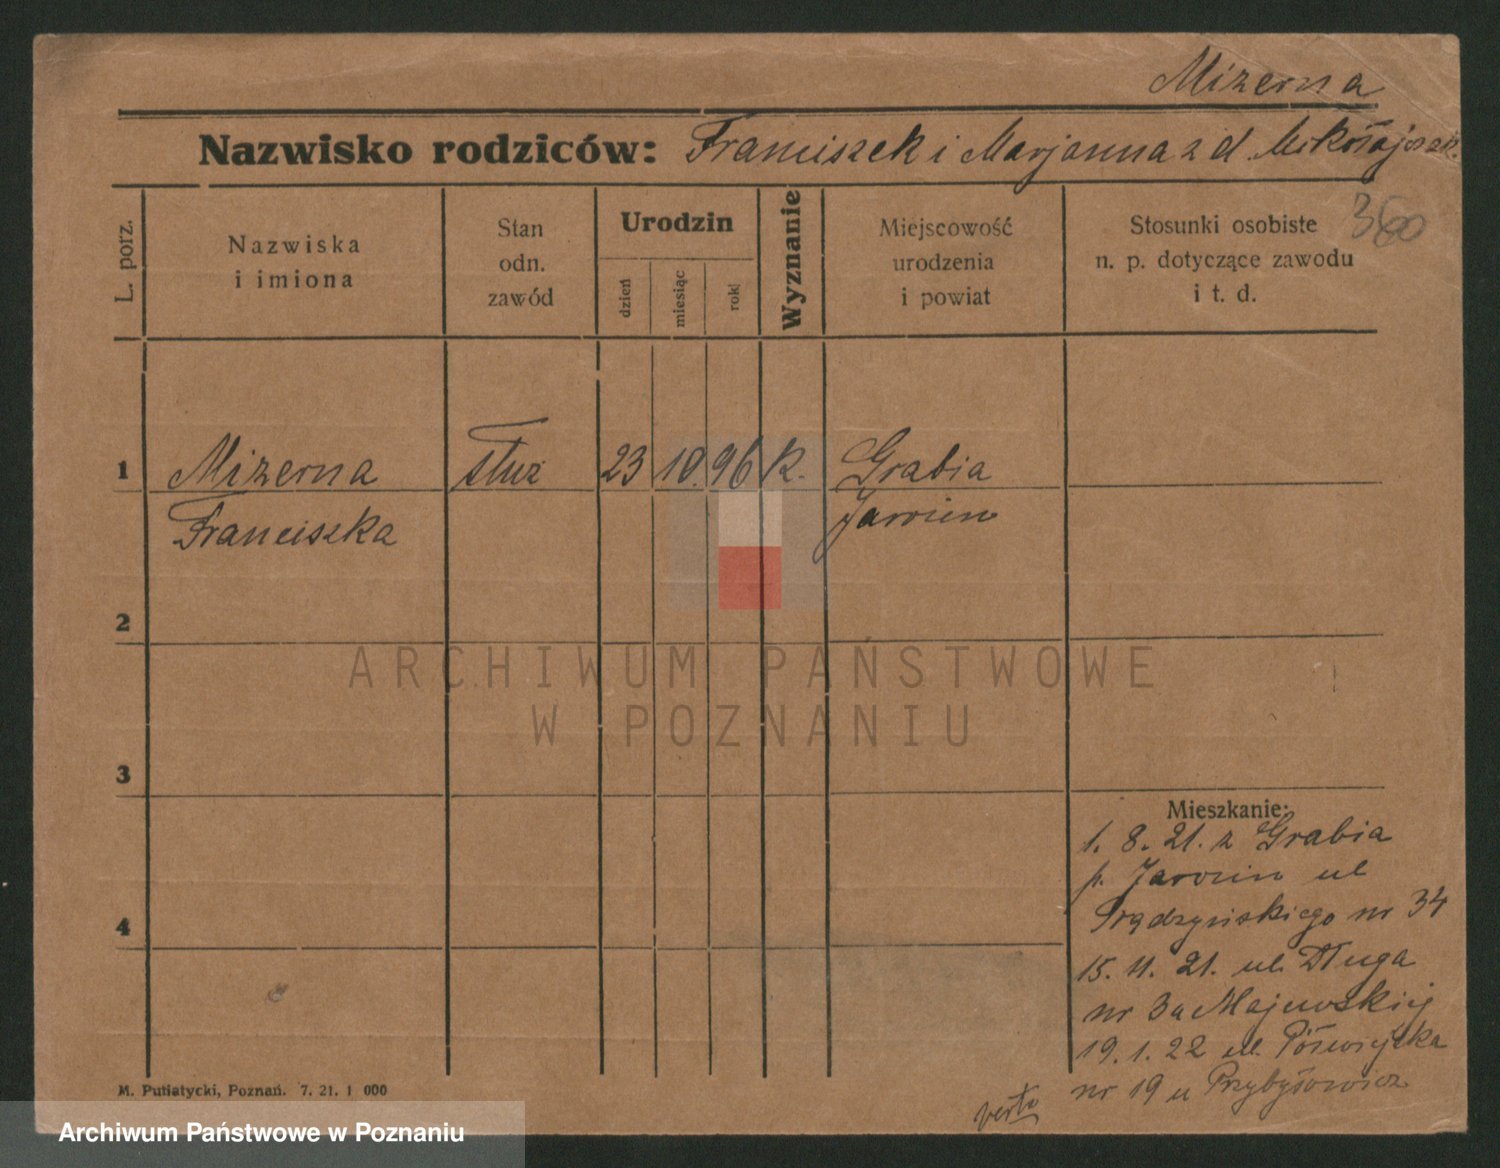 Mizerna
Nazwisko rodziców: Franciszek i Marjanna z d. Mikołajczak.
360
L. porz.
Nazwiska
i imiona
Stan
odn.
zawód
Urodzin
dzień
miesiąc
rok
Wyznanie
Miejscowość
urodzenia
i powiat
Stosunki osobiste
n. p. dotyczące zawodu
i t. d.
1 Mizerna służ 23 10. 96 k. Grabia
Franciszka Jarocin
2
ARCHIWUM PAŃSTWOWE
W POZNANIU
3
Mieszkanie:
1. 8. 21. z Grabia
p. Jarocin ul
Prądzyńskiego nr 34
4
15. 11. 21. ul. Długa
nr 3 u Majewskiej
19. 1. 22 ul. Półwiejska
nr 19 u Przybyłowicz
verte
M. Putiatycki, Poznań. 7. 21. 1 000
Archiwum Państwowe w Poznaniu